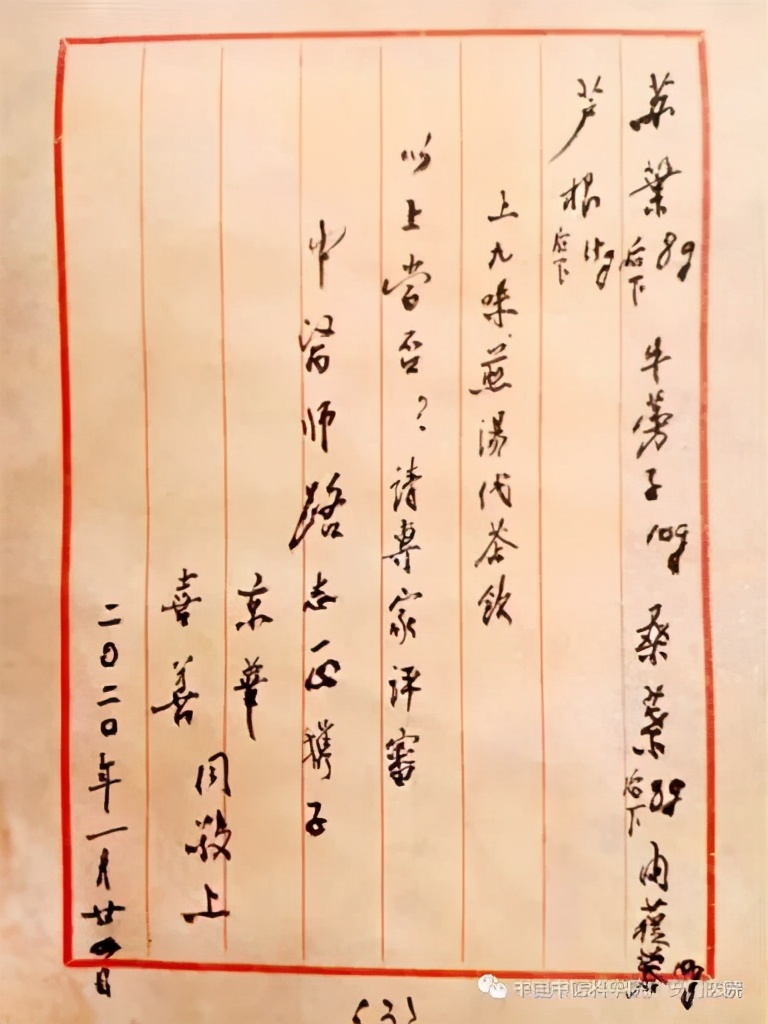 苏葉8g后下 牛蒡子10g 桑葉8g后下 肉蓯蓉10g
芦根15g后下
上九味煎湯代茶飲
以上當否?請專家评審
中醫师路志正携子
京華
喜善
同敬上
二〇二〇年一月廿四日
(3)
中国中医科学院广安门医院